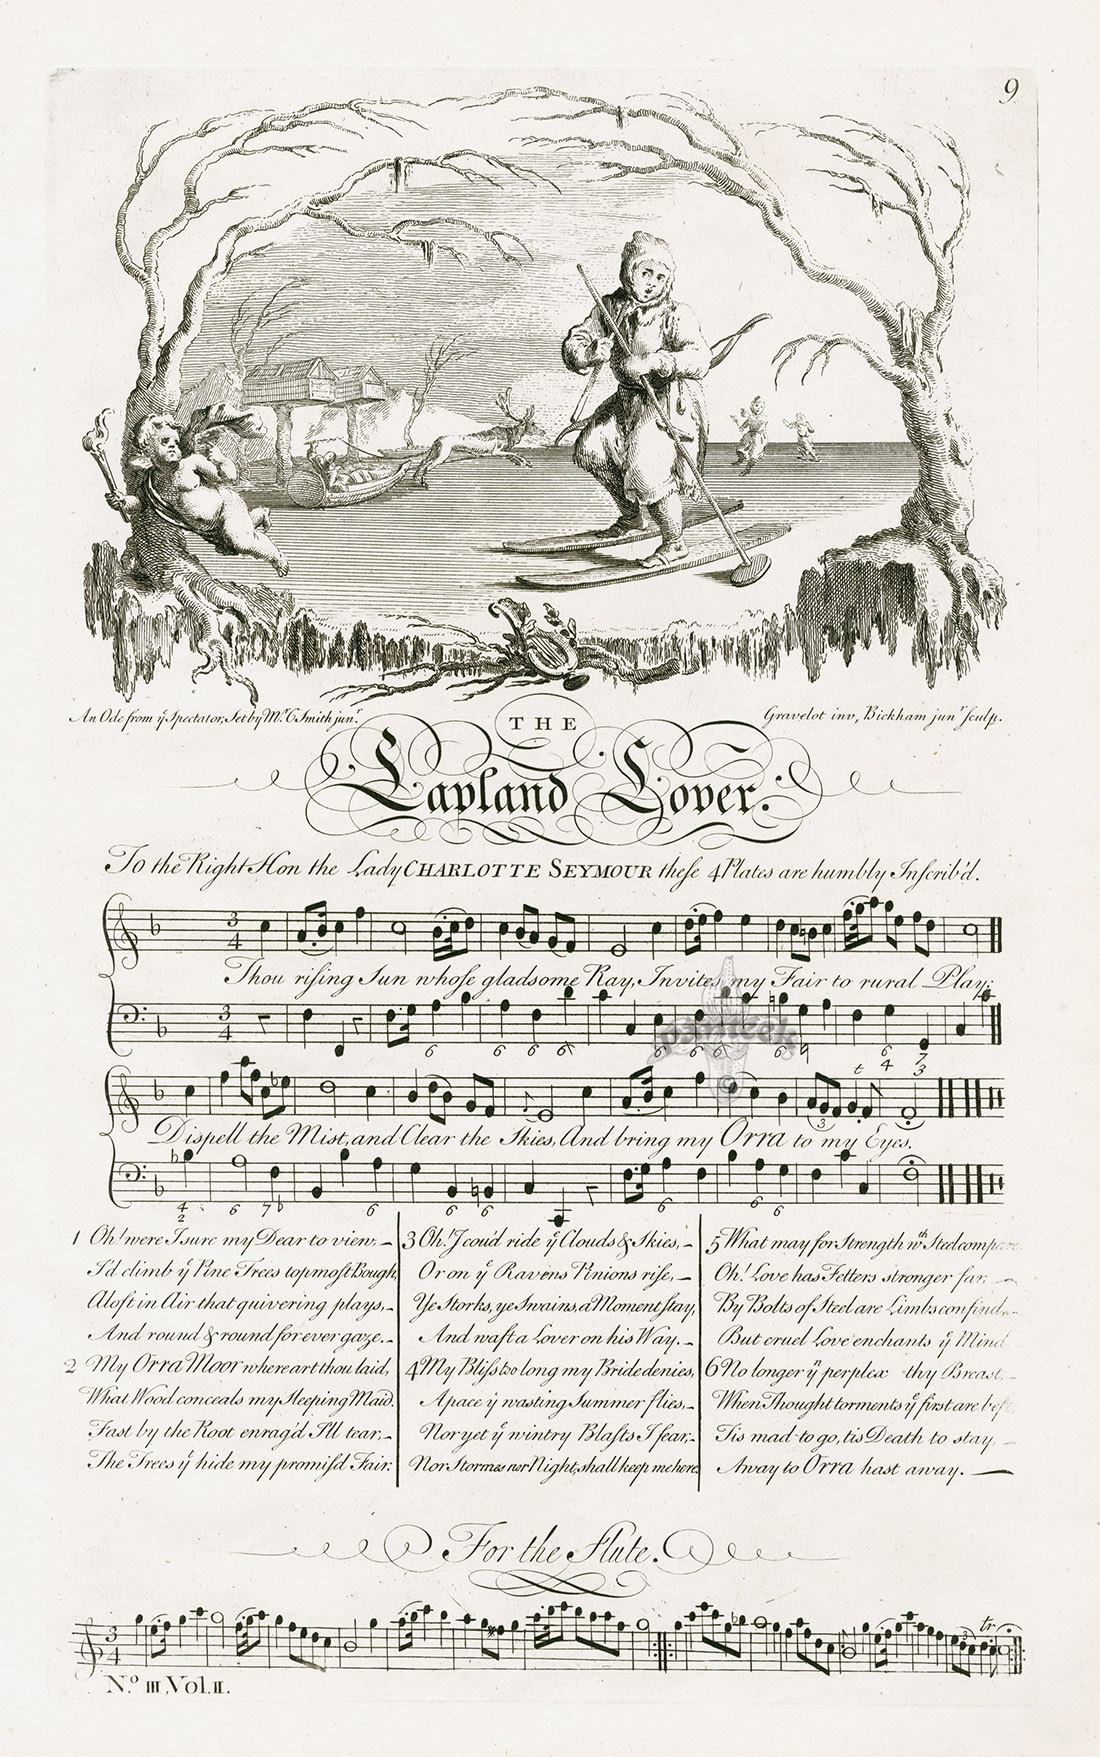 9
An Ode from yͤ Spectator, Set by Mʳ. C Smith junʳ.
Gravelot inv, Bickham junʳ sculp.
THE
Lapland Lover.
To the Right Hon the Lady CHARLOTTE SEYMOUR theſe 4 Plates are humbly Inſcrib'd.
Thou riſing Sun whoſe gladsome Ray, Invites my Fair to rural Play;
Dispell the Mist, and Clear the Skies, And bring my Orra to my Eyes.
1 Oh! were I sure my Dear to view, –
I'd climb yͤ Pine Trees topmoſt Bough,
Aloft in Air that quivering plays, –
And round & round for ever gaze. –
2 My Orra Moor where art thou laid,
What Wood conceals my ſleeping Maid.
Fast by the Root enrag'd I'll tear, –
The Trees yͭ hide my promiſ'd Fair.
3 Oh! I cou'd ride yͤ Clouds & Skies, –
Or on yͤ Ravens Pinions riſe, –
Ye Storks, ye Swains, a Moment ſtay,
And waft a Lover on his Way. –
4 My Bliſs too long my Bride denies,
Apace yͤ wasting Summer flies, –
Nor yet yͤ wintry Blaſts I fear, –
Nor Stormes nor Night, shall keep me here.
5 What may for Strength wᵗʰ Steel compare
Oh! Love has Fetters stronger far, –
By Bolts of Steel are Limbs confind, –
But cruel Love enchants yͤ Mind
6 No longer yⁿ perplex thy Breast, –
When Thought torments yͤ first are best,
Tis mad to go, tis Death to stay, –
Away to Orra hast away. —
For the Flute.
tr
Nº. III, Vol. II.